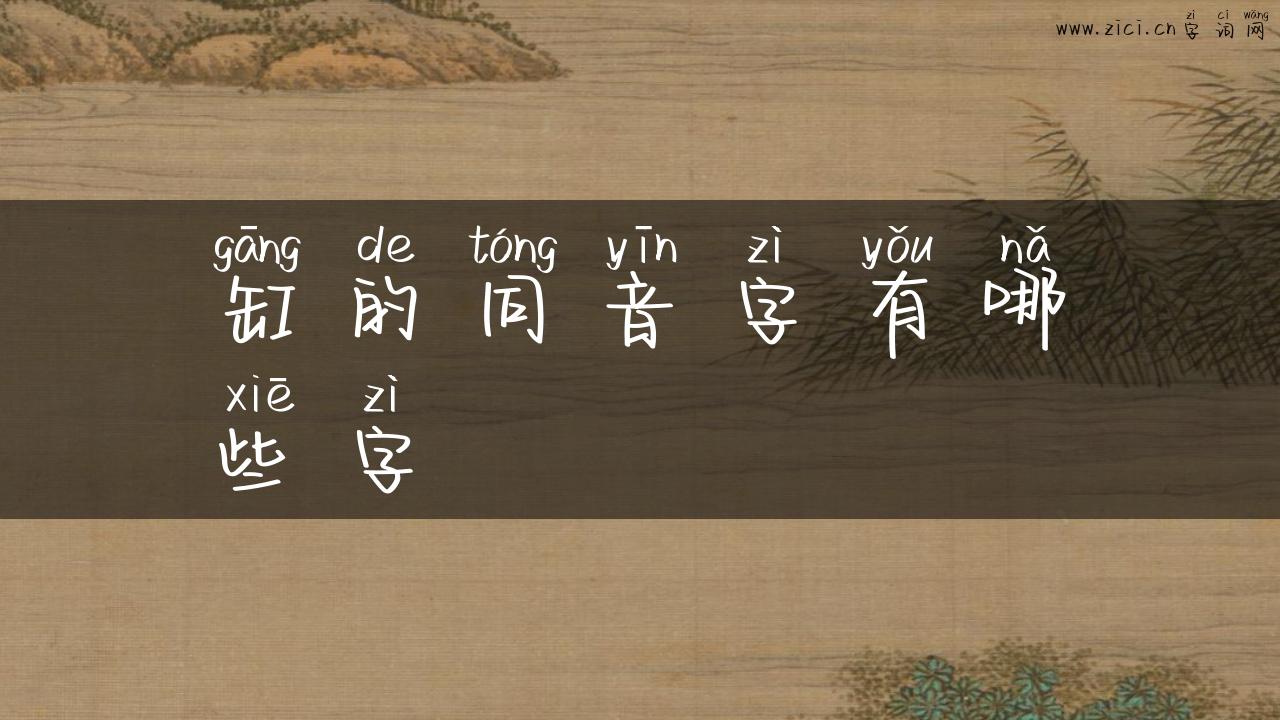 zì cí wǎng
www.zici.cn字词网
gāng de tóng yīn zì yǒu nǎ
缸的同音字有哪
xiē zì
些字